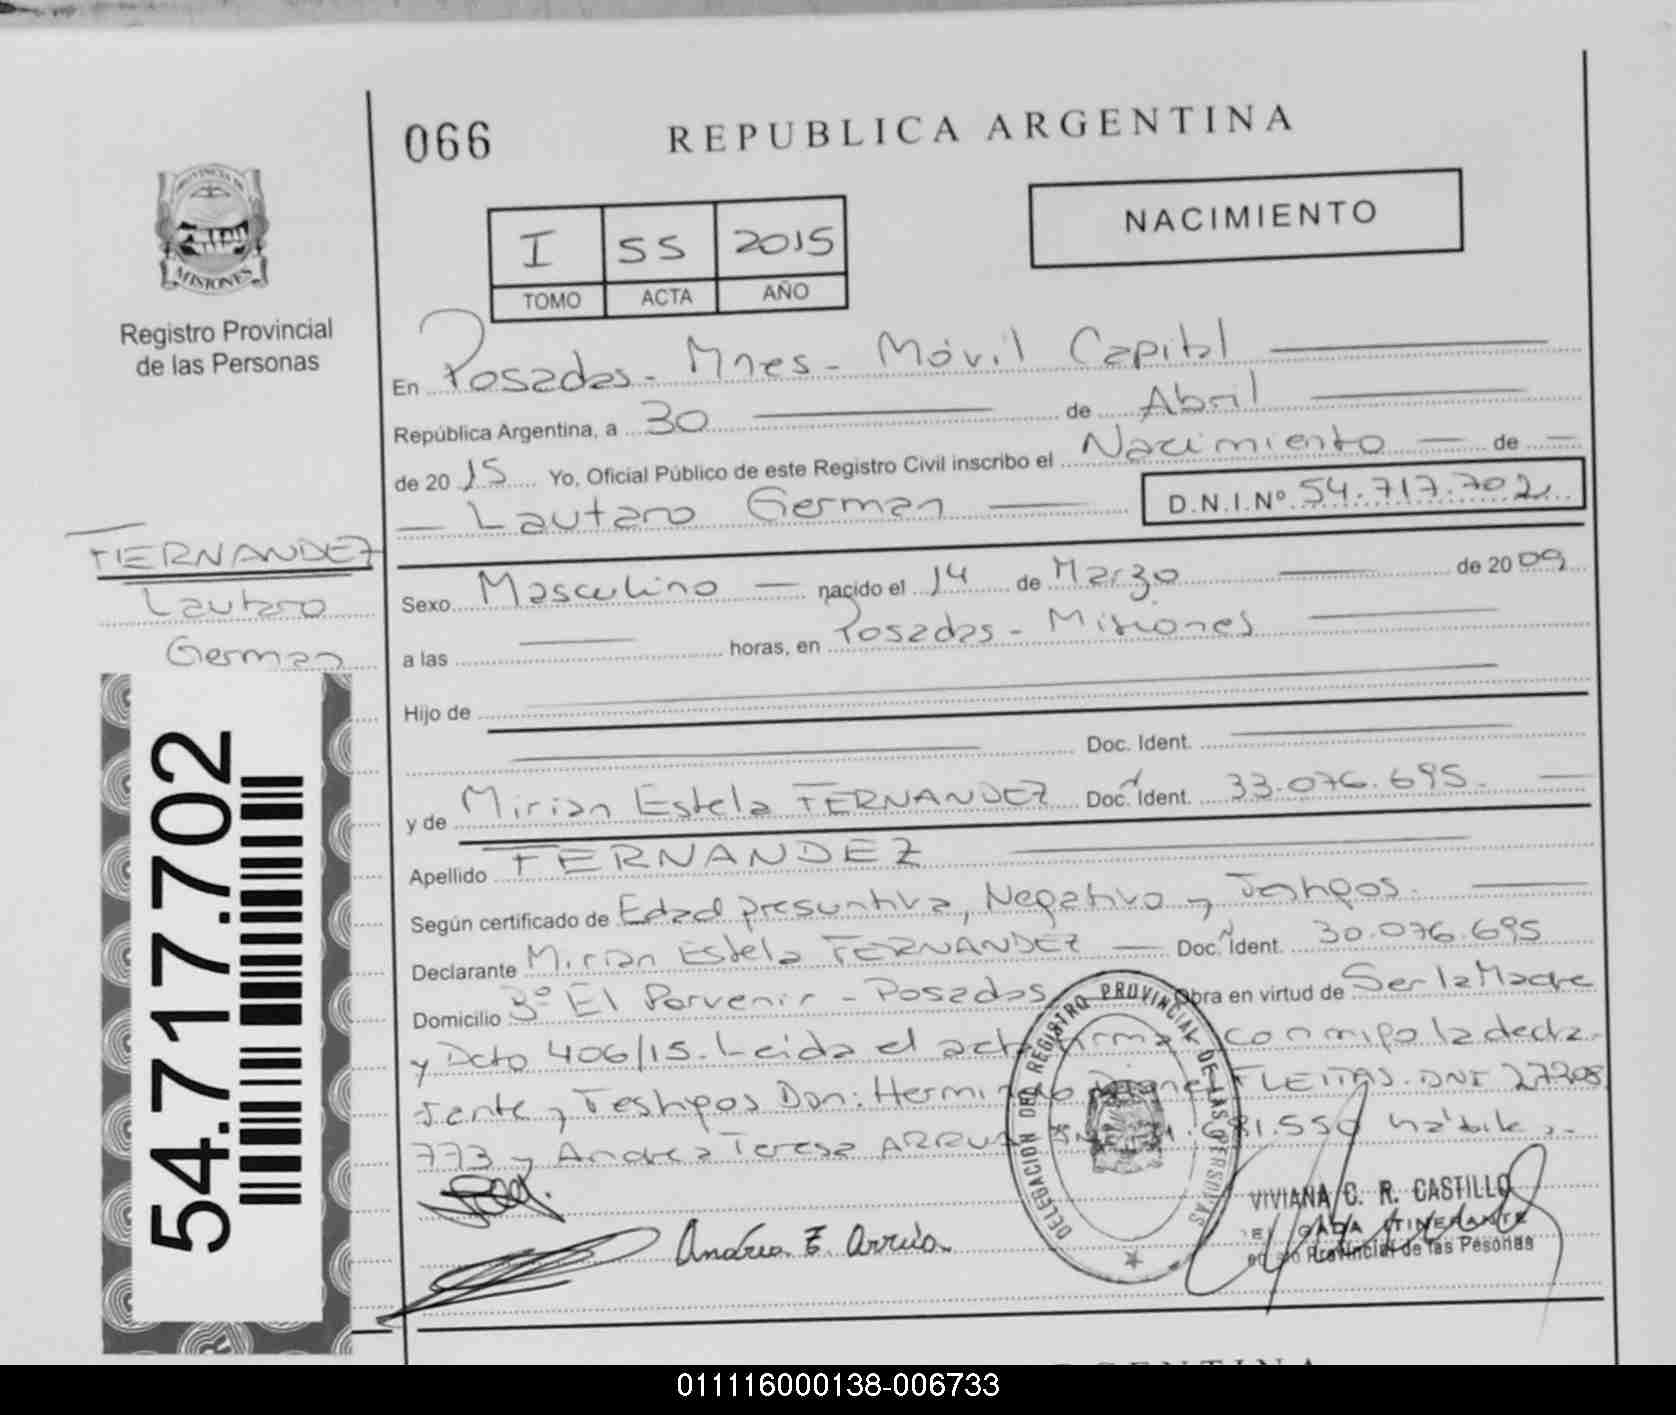 066
REPUBLICA ARGENTINA
PROVINCIA DE
MISIONES
Registro Provincial
de las Personas
I 55 2015
TOMO ACTA AÑO
NACIMIENTO
En Posadas - Mnes - Móvil Capital
República Argentina, a 30 de Abril
de 2015 Yo, Oficial Público de este Registro Civil inscribo el Nacimiento de
Lautaro German D.N.I.Nº 54.717.702
FERNANDEZ
Lautaro
German
Sexo Masculino nacido el 14 de Marzo de 2009
a las horas, en Posadas - Misiones
Hijo de
Doc. Ident.
y de Mirian Estela FERNANDEZ Doc. Ident. 33.076.695.
Apellido FERNANDEZ
Según certificado de Edad presuntiva, Negativo y Testigos.
Declarante Mirian Estela FERNANDEZ Doc. Ident. 30.076.695
Domicilio Bº El Porvenir - Posadas Obra en virtud de Ser la Madre
y Dcto 406/15. Leida el acta firman conmigo la decla-
rante y Testigos Don: Herminio FLEITAS. DNI 27.908
773 y Andrea Teresa ARRUA .681.550 hábiles.-
54.717.702
DELEGACION DEL REGISTRO PROVINCIAL DE LAS PERSONAS
Andrea T. Arrúa
VIVIANA C. R. CASTILLO
ITINERANTE
Provincial de las Pesonas
ARGENTINA
011116000138-006733